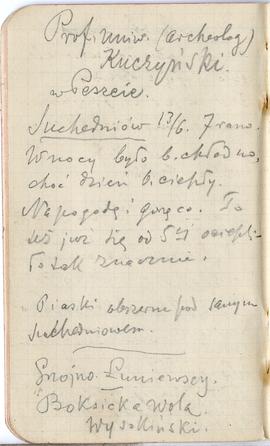 Prof. Uniw. (archeolog)
Kuczyński.
w Peszcie.
Suchedniów 13/6. 7 rano.
W nocy było b. chłodno,
choć dzień b. ciepły.
Na pogodę i gorąco. To
też już się od 5 ej ociepli-
ło tak znacznie.
Piaski obszerne pod samym
Suchedniowem.
Gnojno. Łuniewscy.
Boksicka Wola
Wysokiński.